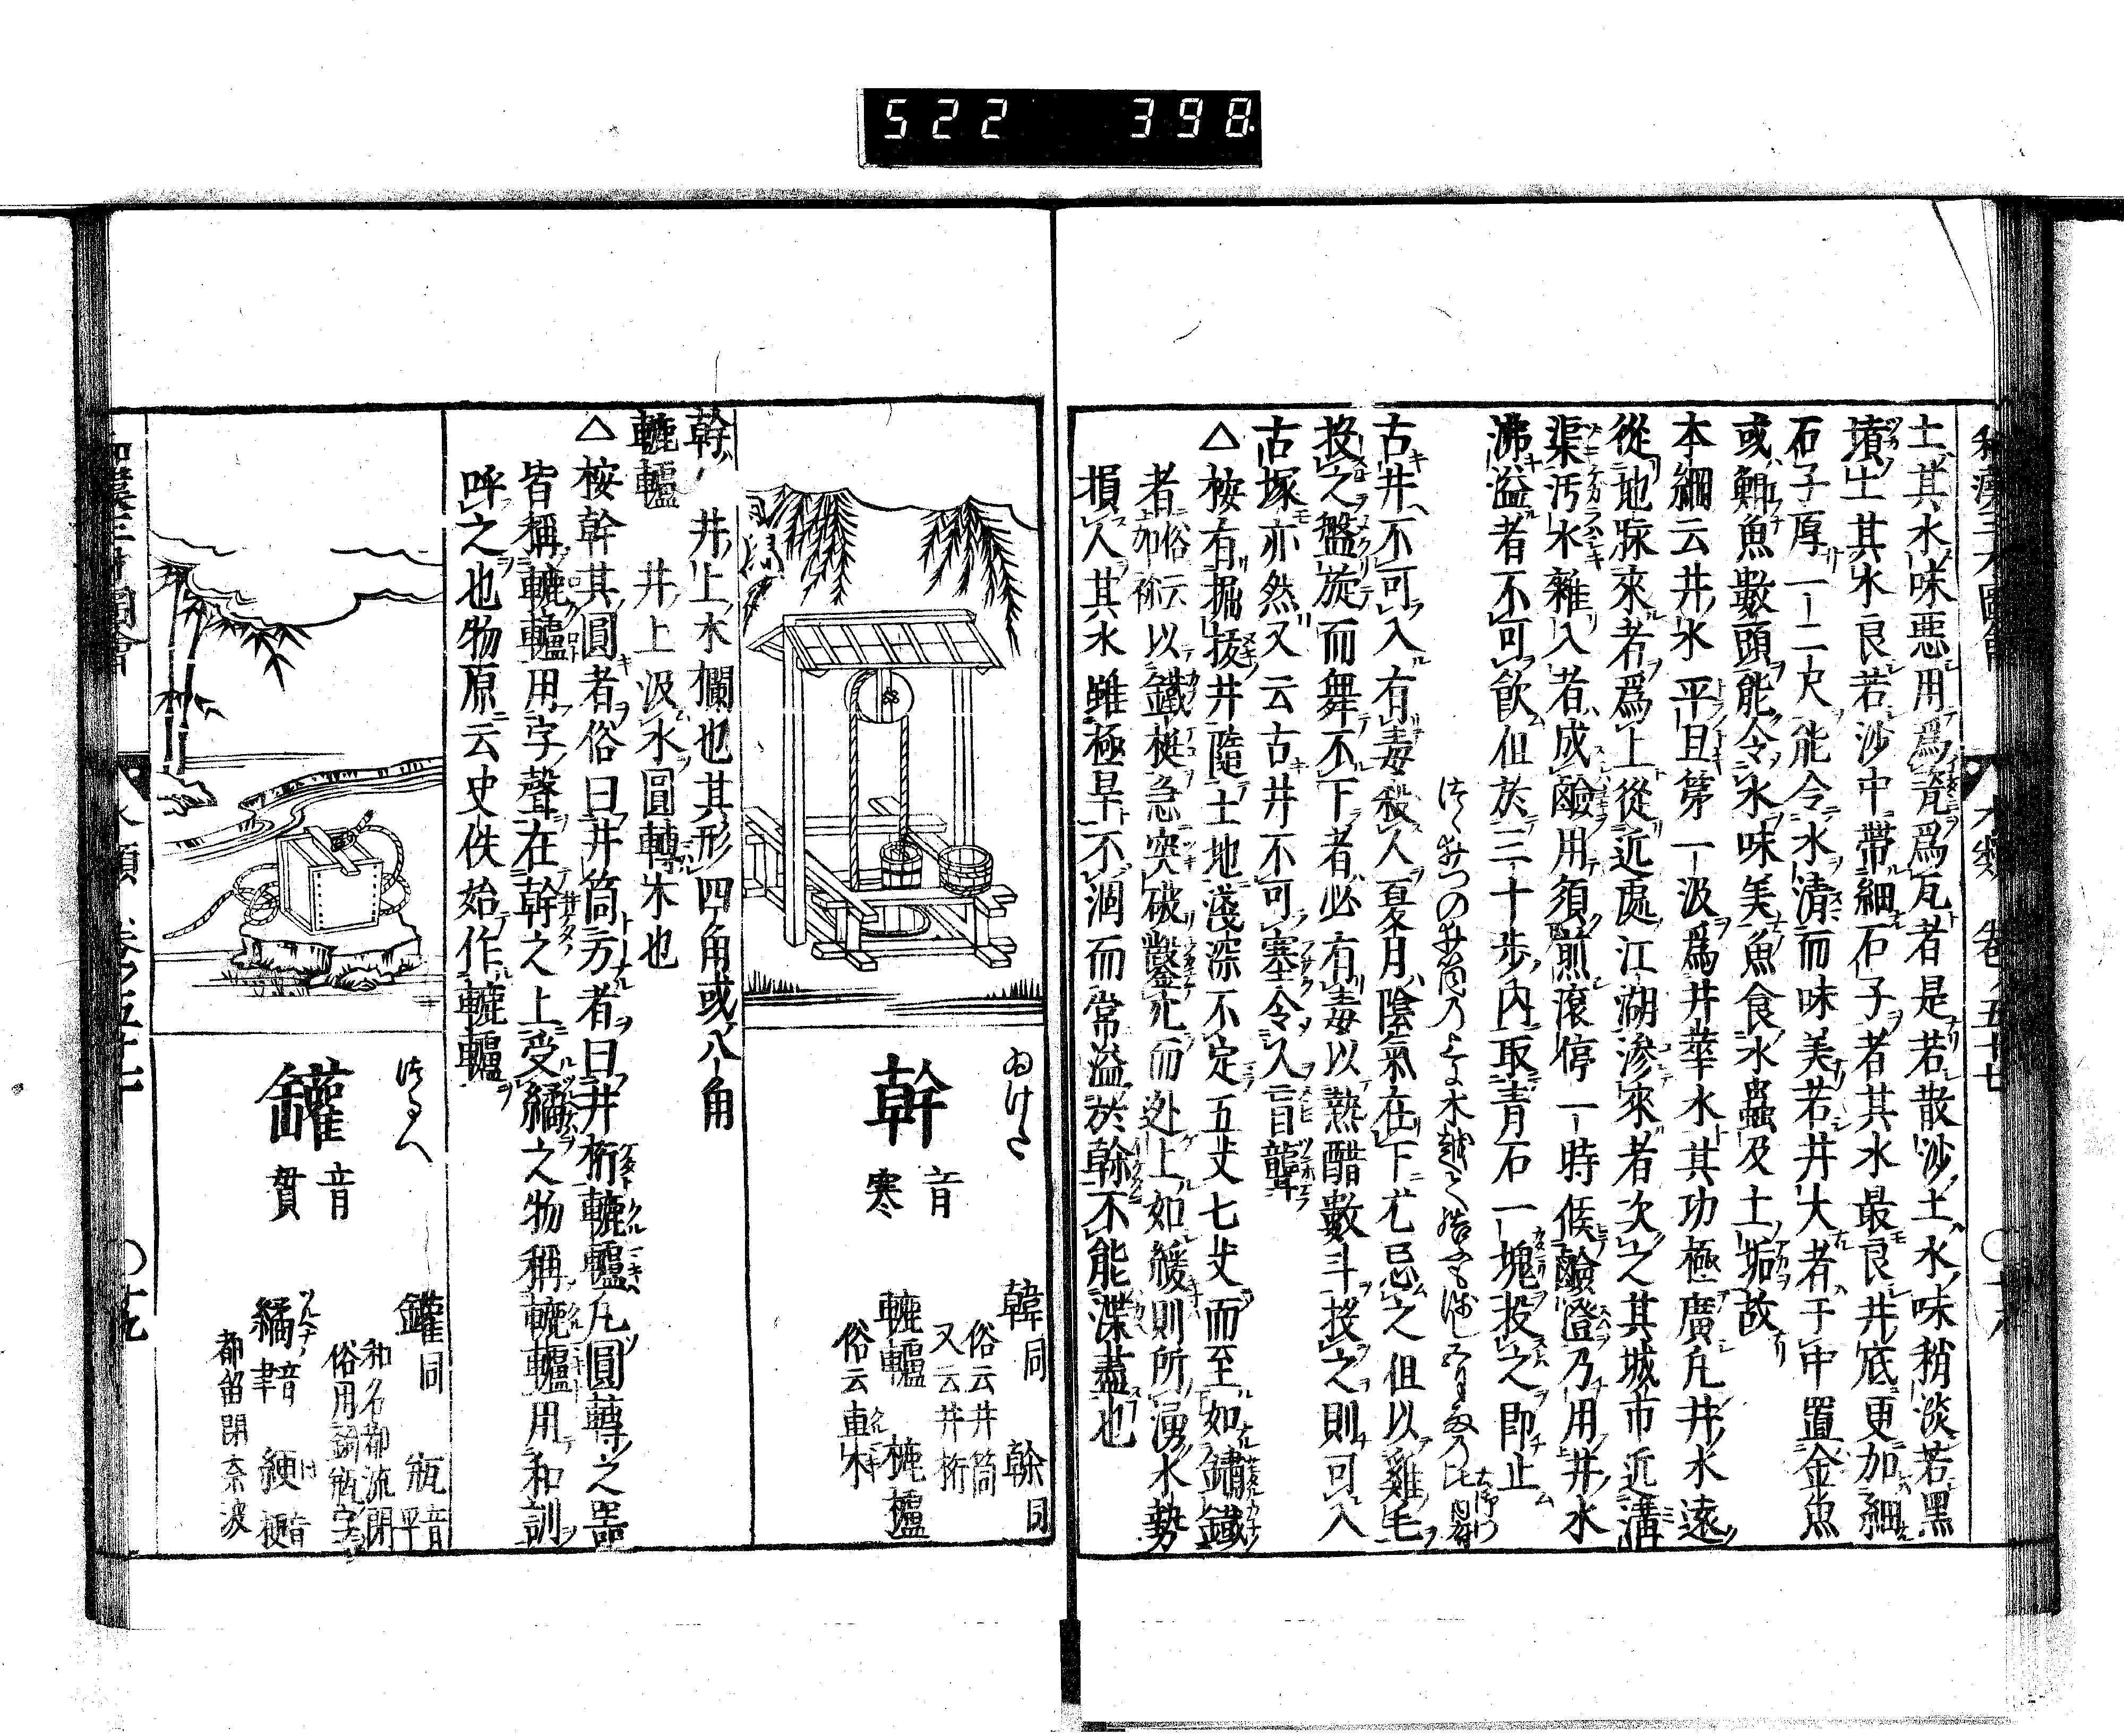 522 398
土其水味惡用爲甃爲瓦者是若散沙土水味稍淡若黑
墳土其水良若沙中帶細石子者其水最良井底更加細
石子厚一二尺能令水清而味美若井大者于中置金魚
或鯽魚數頭能令水味美魚食水蟲及土垢故
本綱云井水平旦第一汲爲井華水其功極廣凡井水遠
從地脉來者爲上從近處江湖滲來者次之其城市近溝
渠汚水雜入者成鹼用須煎滾停一時候鹼澄乃用井水
沸溢者不可飮但於三十步內取青石一塊投之即止
古井不可入有毒殺人夏月陰氣在下尤忌之但以雞毛
投之盤旋而舞不下者必有毒以熱醋數斗投之則可入
古塚亦然又云古井不可塞令人盲聾
△按有掘拔井隨土地淺深不定五丈七丈而至如鏽鐵
者俗云加祢以鐵梃急突破鑿穴而处上如緩則所湧水勢
損人其水雖極旱不涸而常溢於幹不能渫盡也
ゐけた
幹
音寒
韓同 榦同
俗云井筒
又云井桁
轆轤 樚櫨
俗云車木
幹 井上木欄也其形四角或八角
轆轤 井上汲水圓轉木也
△按幹其圓者俗曰井筒方者曰井桁轆轤凡圓轉之器
皆稱轆轤用字聲在幹之上受繘之物稱轆轤用和訓
呼之也物原云史佚始作轆轤
つるへ
鑵
音貫
罐同 瓶音平
和名都流閉
俗用釣瓶字
繘音聿 綆音梗
都留閉奈波